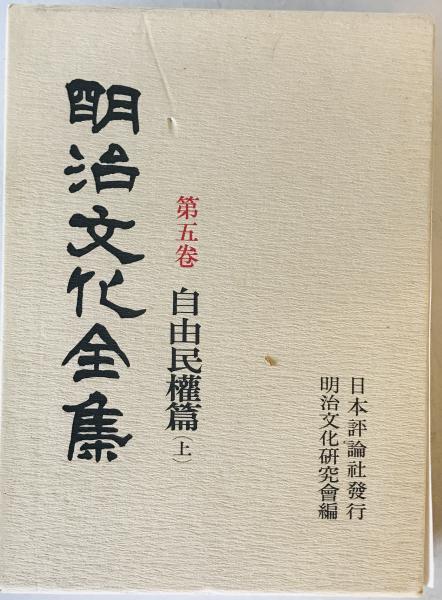 明治文化全集
第五卷 自由民權篇(上)
日本評論社發行
明治文化研究會編